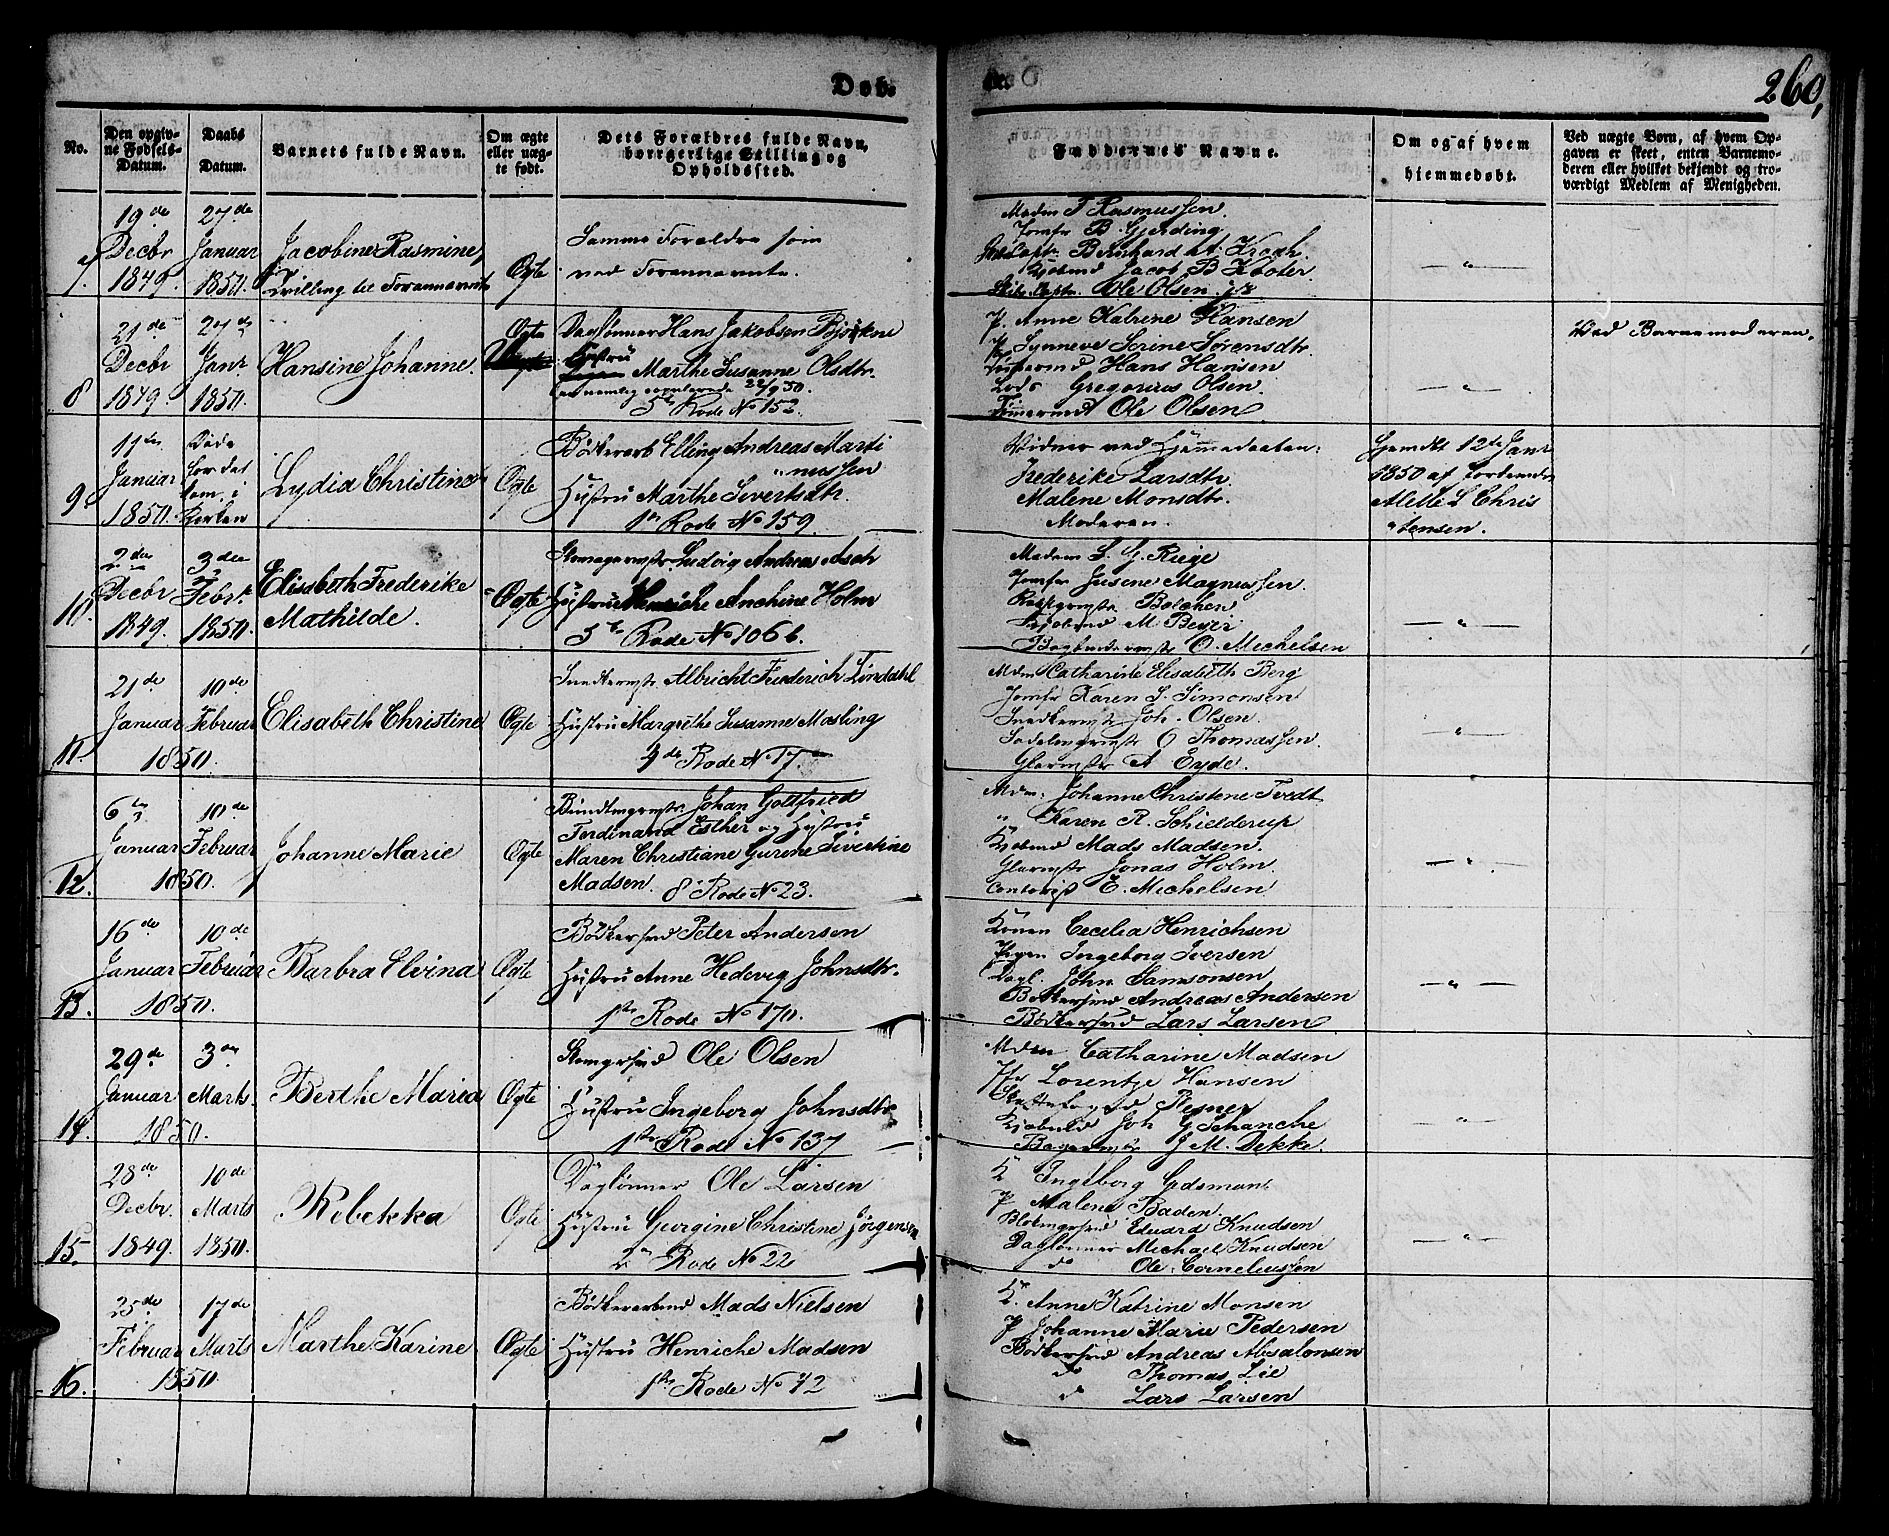 Døb.
260,
No.
Den opgiv-
ne Fødsels-
Datum.
Daabs
Datum.
Barnets fulde Navn.
Om ægte
eller uæg-
te født.
Dets Forældres fulde Navn,
borgerlige Stilling og
Opholdssted.
Faddernes Navne.
Om og af hvem
hjemmedøbt.
Ved uægte Børn, af hvem Op-
gaven er skeet, enten Barnemo-
deren eller hvilket bekjendt og tro-
værdigt Medlem af Menigheden.
7.
19de
Decbr
1849.
27de
Januar
1850.
Jacobine Rasmine,
Tvilling til Forannævnte
Ægte
Samme Forældre som
ved Forannævnte.
Madm T Rasmussen.
Jomfr B. Gjerding
Capt. Bernhard Krogh.
Kjøbmd Jacob B Kooter
Skibs Captn. Ole Olsen
— " —
8
21de
Decbr
1849.
27de
Janr
1850.
Hansine Johanne.
Ægte
Daglønner Hans Jakobsen Bjørkne
Hustru Marthe Susanne Olsdtr.
22/9 50.
5te Rode No 152.
P. Anne Katrine Hansen
P. Synneve Serine Sørensdtr.
Tømermd Hans Hansen
Lods Gregorius Olsen
Tømermd Ole Olsen
— " —
Ved Barnemoderen.
9.
11te
Januar
1850.
Døde
før det
kom i
Kirken
Lydia Christine
Ægte
Bødkerarb Elling Andreas Marti
"nussen
Hustru Marthe Sivertsdtr.
1ste Rode No 159.
Vidner ved Hjemmedaaben:
Frederike Larsdtr.
Malene Monsdtr.
Moderen.
Hjemdbt 12te Janr
1850 af Jordemdr
Alette L Chris
"tensen.
10.
2den
Decbr
1849.
3die
Febr.
1850.
Elisabeth Frederike
Mathilde.
Ægte
Skomagermstr Ludvig Andreas Asch
Hustru Henriche Anchine Holm
5te Rode No 106 b.
Madm S. G. Riege
Jomfr Jusine Magnussen.
Rebslgrmstr Bøtchen
Kjøbmd M. Beyer
Bogbindermstr O. Michelsen
— " —
11.
21de
Januar
10de
Februar
1850.
Elisabeth Christine
Ægte
Snedkermstr Albricht Friederich Lindahl
Hustru Margrethe Susanne Masling
4de Rode No 17
Mdm Catharine Elisabeth Berg
Jomfr Karen S. Simonsen
Snedkermstr Joh. Olsen.
Sadelmgrmstr O Thomassen.
Glarmstr A Eyde.
— " —
12.
6te
Januar
10de
Februar
1850.
Johanne Marie
Ægte
Bundtmgrmstr. Johan Gottfried
Ferdinand Esther og Hustru
Maren Christiane Gurine Sivertine
Madsen. 8de Rode No 23.
Mdm. Johanne Christine Tvedt
" Karen R. Schielderup
Kjøbmd Mads Madsen.
Glarmstr Jonas Holm.
Contorist E. Michelsen
— " —
13.
16de
Januar
10de
Februar
1850.
Barbra Elvina
Ægte
Bødkersvd Peter Andersen
Hustru Anne Hedevig Johnsdtr.
1ste Rode No 170.
Konen Cecelia Henrichsen
Pigen Ingeborg Iversen
Dagl. John Samsonsen
Bødkersvd Andreas Andersen
Bødkersvd Lars Larsen
— " —
14.
29de
Januar
3die
Marts.
1850.
Berthe Maria
Ægte
Skomgrsvd Ole Olsen
Hustru Ingeborg Johnsdtr
1ste Rode No 137
Mdm Catharine Madsen
Jfr Lorentze Hansen
Skattefogd Regner
Kjøbmd Joh G Schanche
Bagermstr J M. Dekke.
— " —
15.
28de
Decbr.
1849.
10de
Marts
1850.
Rebekka
Ægte
Daglønner Ole Larsen
Hustru Georgine Christine Jørgensen
2den Rode No 22
K Ingeborg Gidsman.
P Malene Baden.
Blokmgrsvd Eduard Knudsen
Daglønner Michael Knudsen
do Ole Corneliussen
— " —
16.
25de
Februar
17de
Marts
1850
Marthe Karine
Ægte
Bødkerarbmd Mads Nielsen
Hustru Henriche Madsen
1ste Rode No 72
K. Anne Katrine Monsen
P Johanne Marie Pedersen
Bødkersvd Andreas Absalonsen
do Thomas Lie
do Lars Larsen